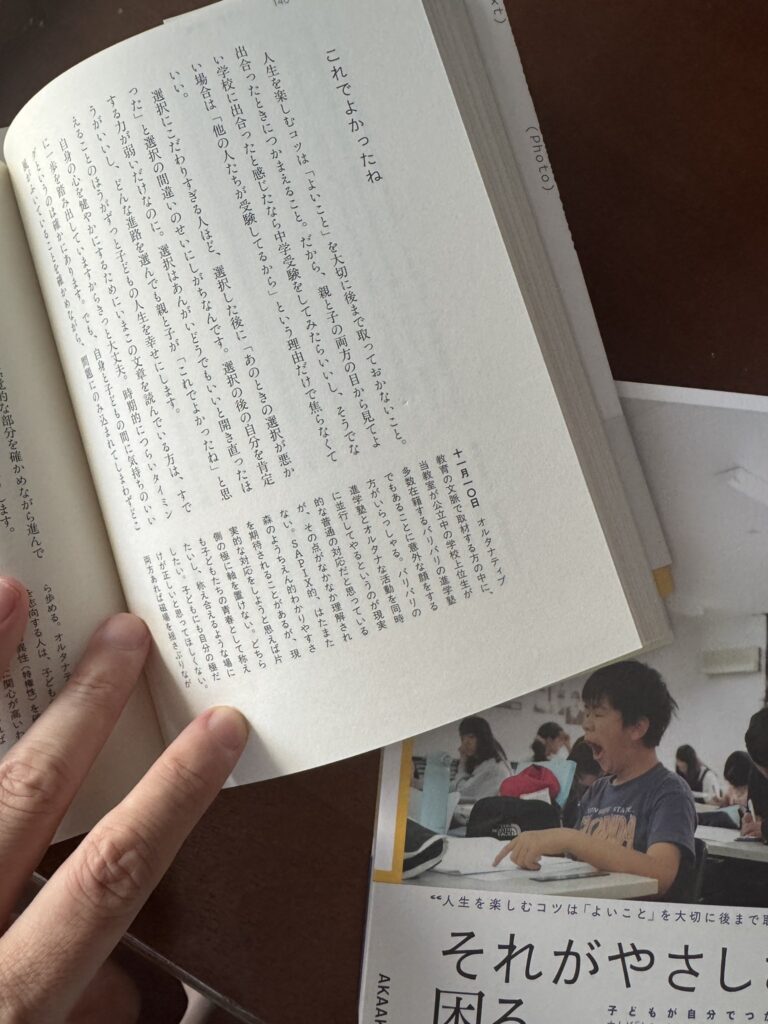 140
これでよかったね
人生を楽しむコツは「よいこと」を大切に後まで取っておかないこと。
出合ったときにつかまえること。だから、親と子の両方の目から見てよ
い学校に出合ったと感じたなら中学受験をしてみたらいいし、そうでな
い場合は「他の人たちが受験してるから」という理由だけで焦らなくて
いい。
選択にこだわりすぎる人ほど、選択した後に「あのときの選択が悪か
った」と選択の間違いのせいにしがちなんです。選択の後の自分を肯定
する力が弱いだけなのに。選択はあんがいどうでもいいと開き直ったほ
うがいいし、どんな進路を選んでも親と子が「これでよかったね」と思
えることのほうがずっと子どもの人生を幸せにします。
自身の心を健やかにするためにいまこの文章を読んでいる方は、すで
に一歩を踏み出していますからきっと大丈夫。時期的につらいタイミン
グというのは確かにあります。でも、自身と子どもの間に気持ちのいい
風がふいていることを確かめながら、問題にのみ込まれてしまわずどこ
十一月一〇日 オルタナティブ
教育の文脈で取材する方の中に、
当教室が公立中の学校上位生が
多数在籍するバリバリの進学塾
でもあることに意外な顔をする
方がいらっしゃる。バリバリの
進学塾とオルタナな活動を同時
に並行してやるというのが現実
的な普通の対応だと思っている
が、その点がなかなか理解され
ない。SAPIX的、はたまた
森のようちえん的わかりやすさ
を期待されることがあるが、現
実的な対応をしようと思えば片
側の極に軸を置けない。どちら
も子どもたちの青春として称え
たいし、称え合えるような場に
したい。子どもにも自分の極だ
けが正しいと思ってほしくない。
両方あれば磁場を揺さぶりなが
覚的な部分を確かめながら進んで
します。
ら歩める。オルタナティブ
を志向する人は、子ども
異性（特権性）を
に関心が高いわ
れば
xt)
(Photo)
“人生を楽しむコツは「よいこと」を大切に後まで取
それがやさし
困る
子どもが自分でつか
AKAAK